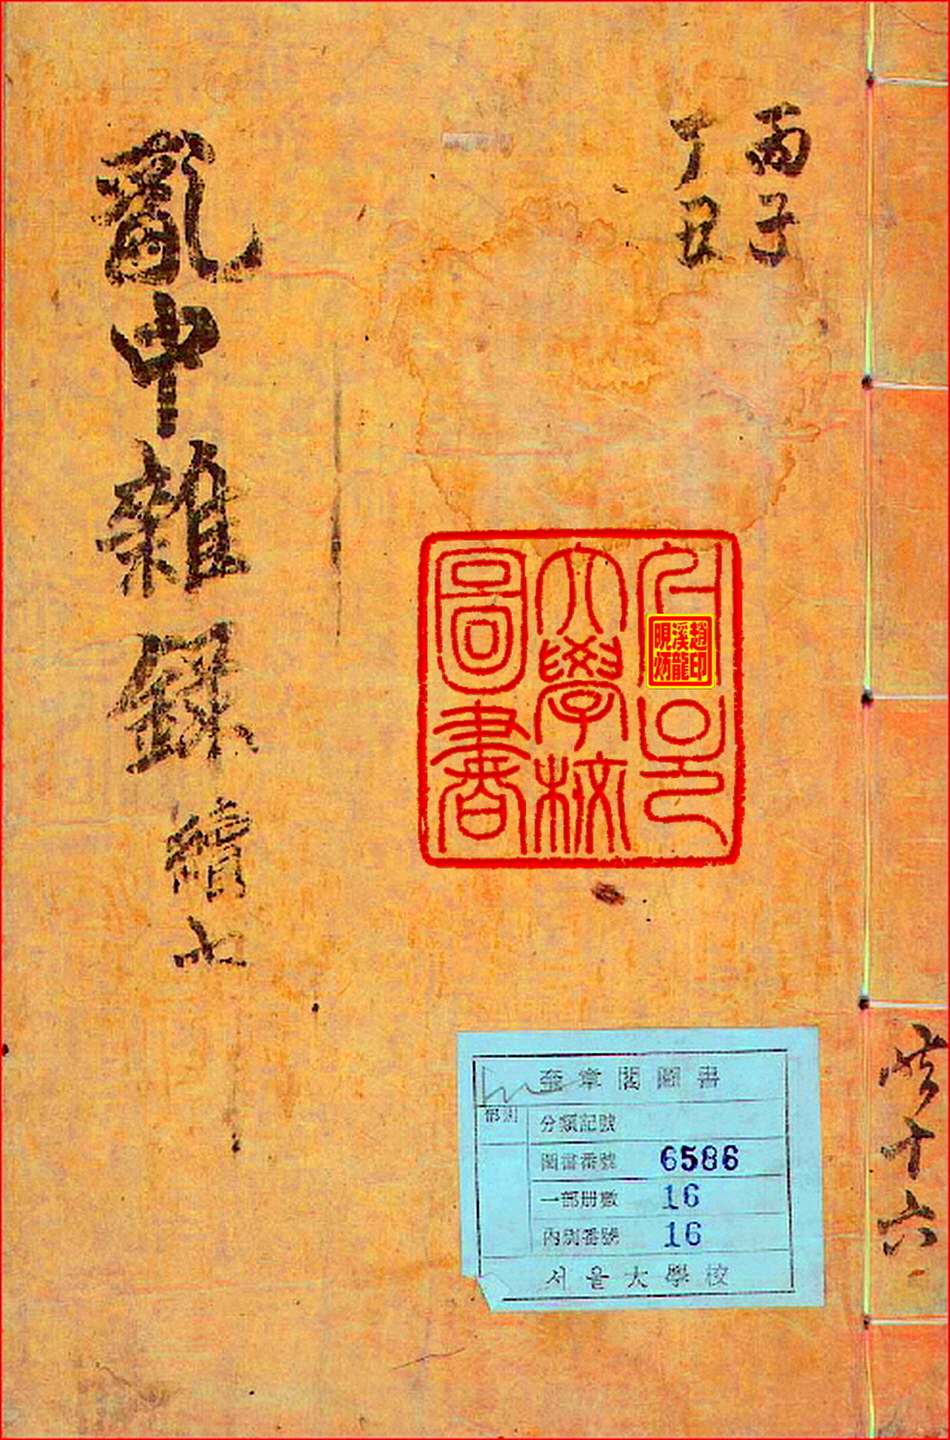 丙子
丁丑
亂中雜錄 續
서울
大學校
圖書
趙印
溪龍
共十六
奎章閣圖書
部別
分類記號
圖書番號 6586
一部册數 16
內別番號 16
서울大學校